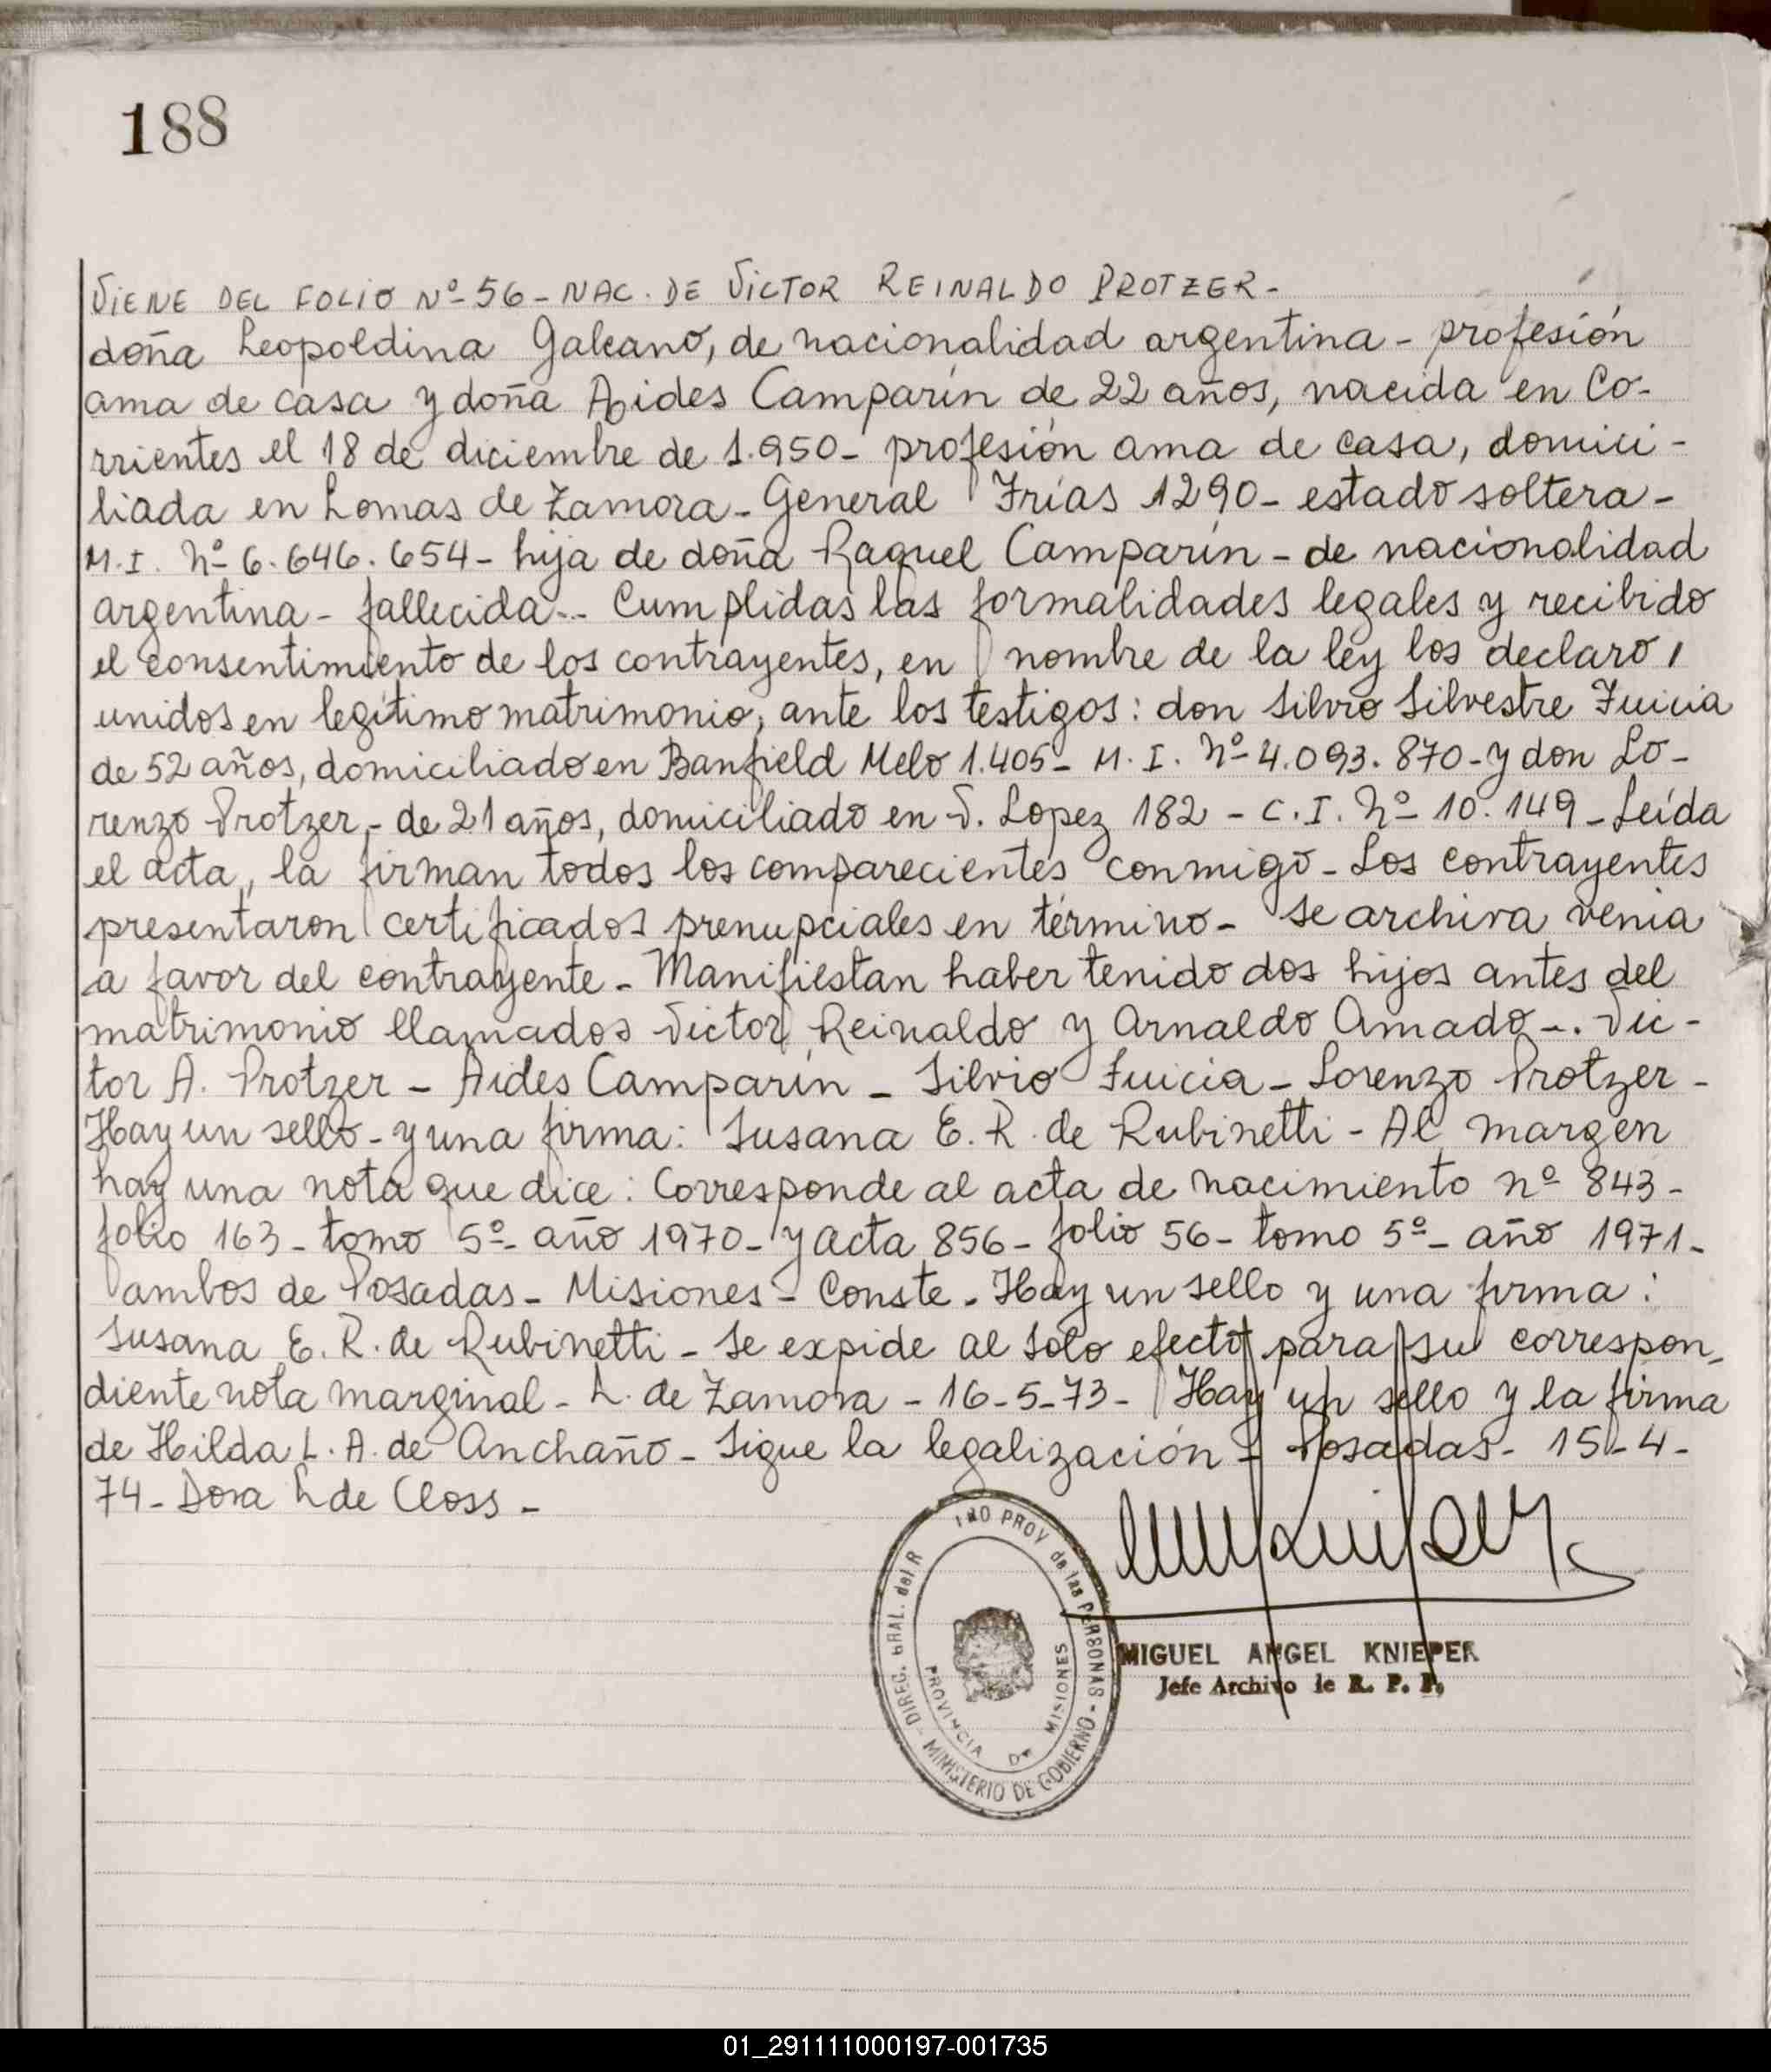 188
VIENE DEL FOLIO Nº 56 - NAC. DE VICTOR REINALDO PROTZER -
doña Leopoldina Galeano, de nacionalidad argentina - profesión
ama de casa y doña Aides Camparín de 22 años, nacida en Co-
rrientes el 18 de diciembre de 1.950 - profesión ama de casa, domici-
liada en Lomas de Zamora - General Frías 1290 - estado soltera -
M.I. Nº 6.646.654 - hija de doña Raquel Camparín - de nacionalidad
argentina - fallecida -. Cumplidas las formalidades legales y recibido
el consentimiento de los contrayentes, en nombre de la ley los declaro,
unidos en legítimo matrimonio, ante los testigos: don Silvio Silvestre Fuicia
de 52 años, domiciliado en Banfield Melo 1.405 - M.I. Nº 4.093.870 - y don Lo-
renzo Protzer, - de 21 años, domiciliado en V. Lopez 182 - C.I. Nº 10.149 - Leída
el acta, la firman todos los comparecientes conmigo - Los contrayentes
presentaron certificados prenupciales en término - Se archiva venia
a favor del contrayente - Manifiestan haber tenido dos hijos antes del
matrimonio llamados Victor Reinaldo y Arnaldo Amado -. Vic-
tor A. Protzer - Aides Camparín - Silvio Fuicia - Lorenzo Protzer -
Hay un sello - y una firma: Susana E. R. de Rubinetti - Al margen
hay una nota que dice: Corresponde al acta de nacimiento nº 843 -
folio 163 - tomo 5º - año 1970 - y acta 856 - folio 56 - tomo 5º - año 1971 -
ambos de Posadas - Misiones - Conste - Hay un sello y una firma:
Susana E. R. de Rubinetti - Se expide al solo efecto para su correspon-
diente nota marginal - L. de Zamora - 16-5-73 - Hay un sello y la firma
de Hilda L. A. de Anchaño - Sigue la legalización - Posadas - 15-4-
74 - Dora L de Closs -
DIREC. GRAL. del R PROV de las PERSONAS - MINISTERIO DE GOBIERNO -
PROVINCIA DE MISIONES
MIGUEL ANGEL KNIEPER
Jefe Archivo de R. P. P.
01_291111000197-001735